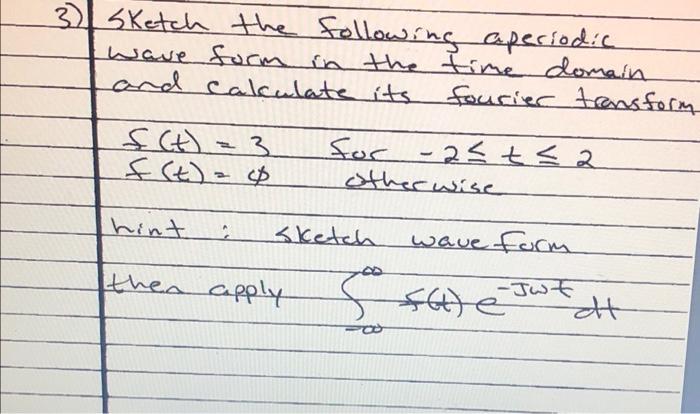 3) Sketch the following aperiodic
wave form in the time domain
and calculate its fourier transform
f(t) = 3 for -2 ≤ t ≤ 2
f(t) = ф otherwise
hint : sketch wave form
then apply ∫_{-∞}^{∞} f(t) e^{-Jωt} dt